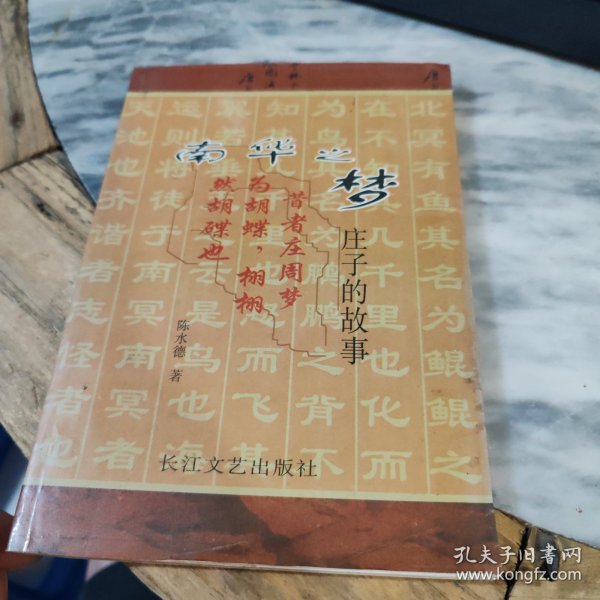 南华之梦
昔者庄周梦
为胡蝶，栩栩
然胡蝶也
庄子的故事
陈水德 著
长江文艺出版社
北冥有鱼其名为鲲鲲之
在不知其几千里也化而
为鸟其名为鹏鹏之背不
知其几千里也怒而飞其
翼若垂天之云是鸟也海
运则将徙于南冥南冥者
天池也齐谐者志怪者也
孔夫子旧书网
www.kongfz.com